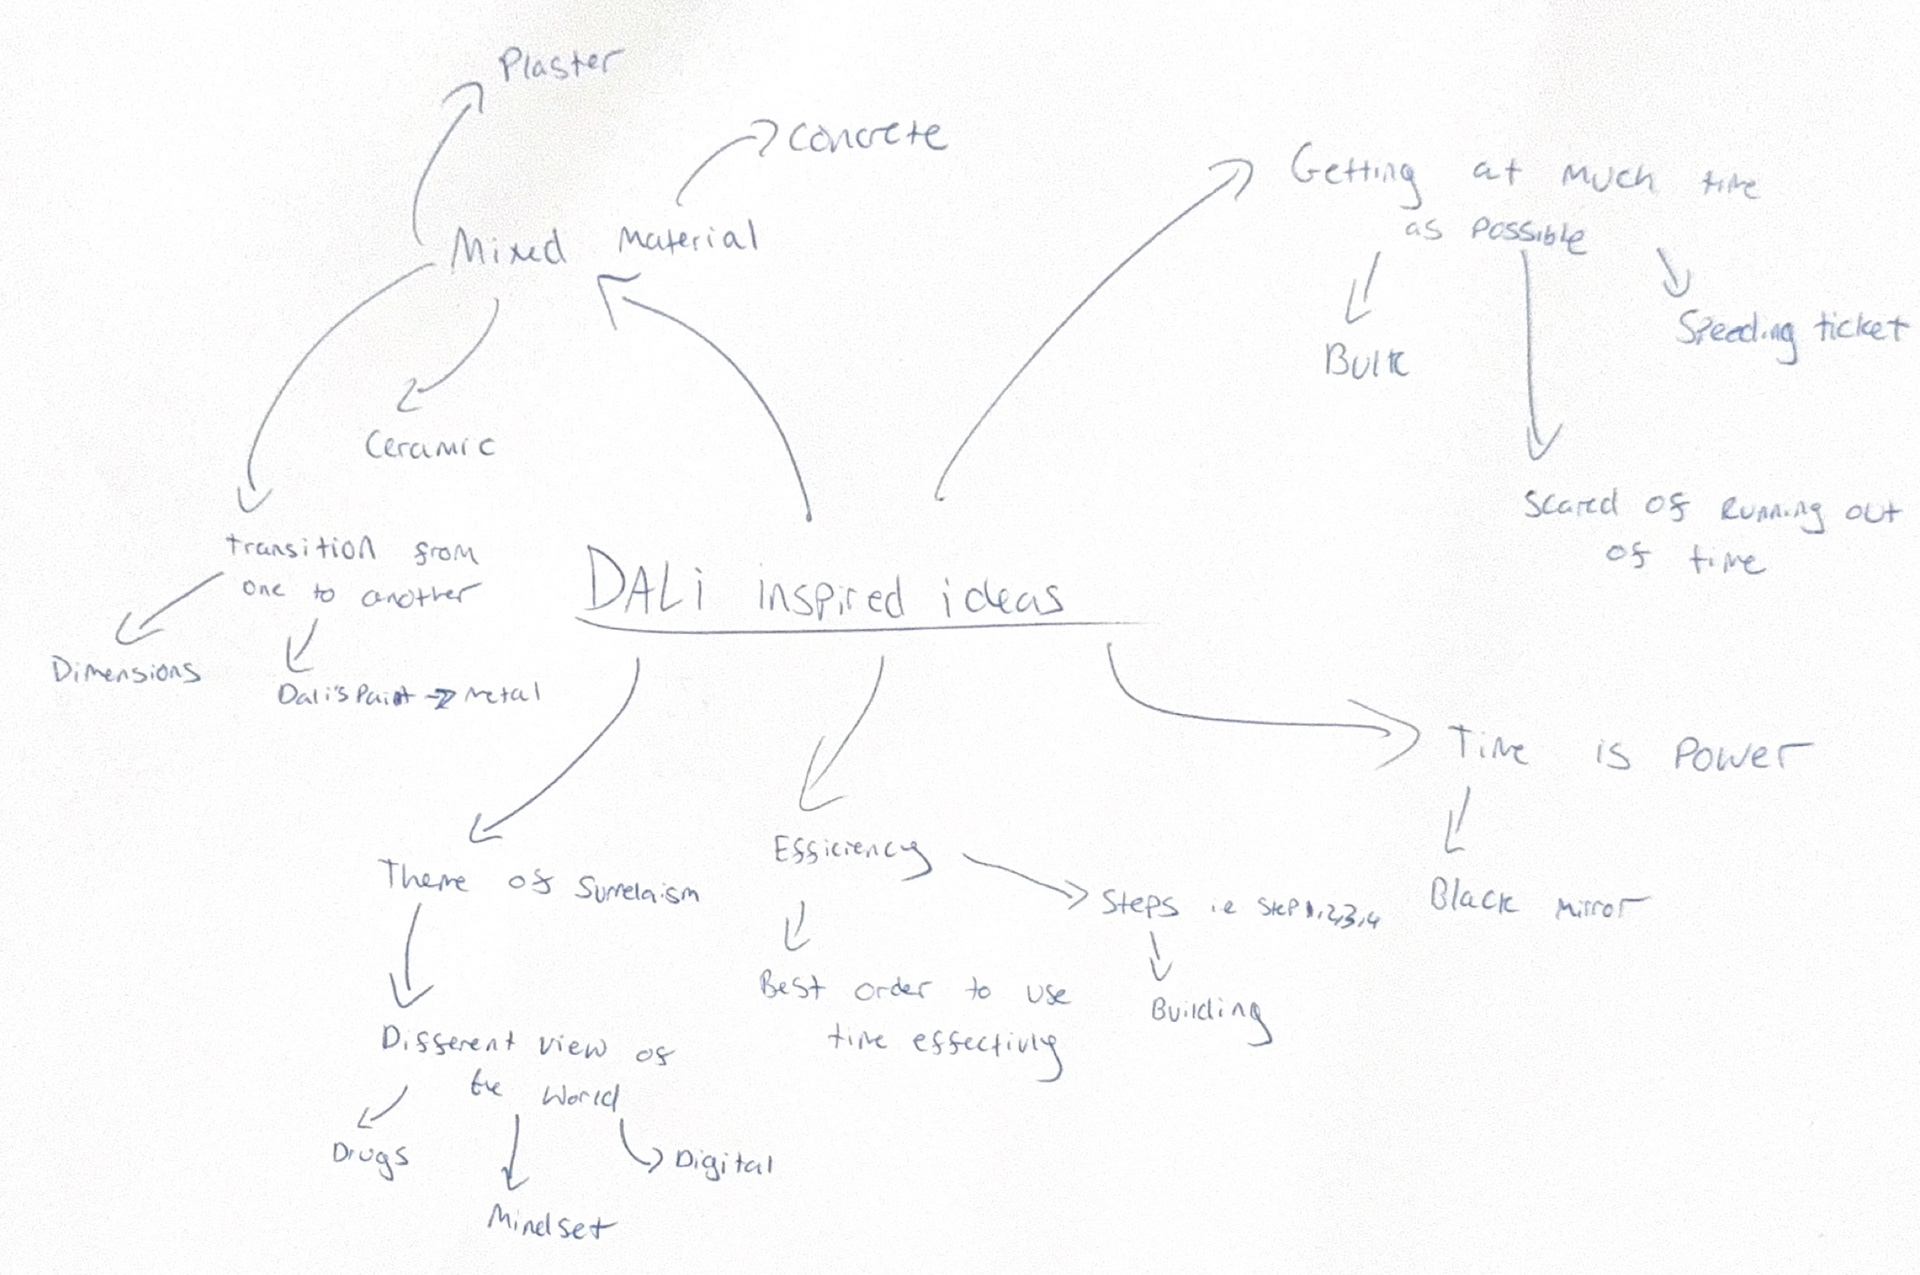 Plaster
Concrete
Mixed Material
Getting at much time
as possible
Speeding ticket
Bulk
Ceramic
Scared of Running out
of time
transition from
one to another
DALi inspired ideas
Dimensions
Dali's Paint → Metal
Time is Power
Theme of Surrelaism
Efficiency
Steps i.e Step 1,2,3,4
Black Mirror
Best order to use
time effectivly
Building
Different view of
the World
Drugs
Digital
Mindset